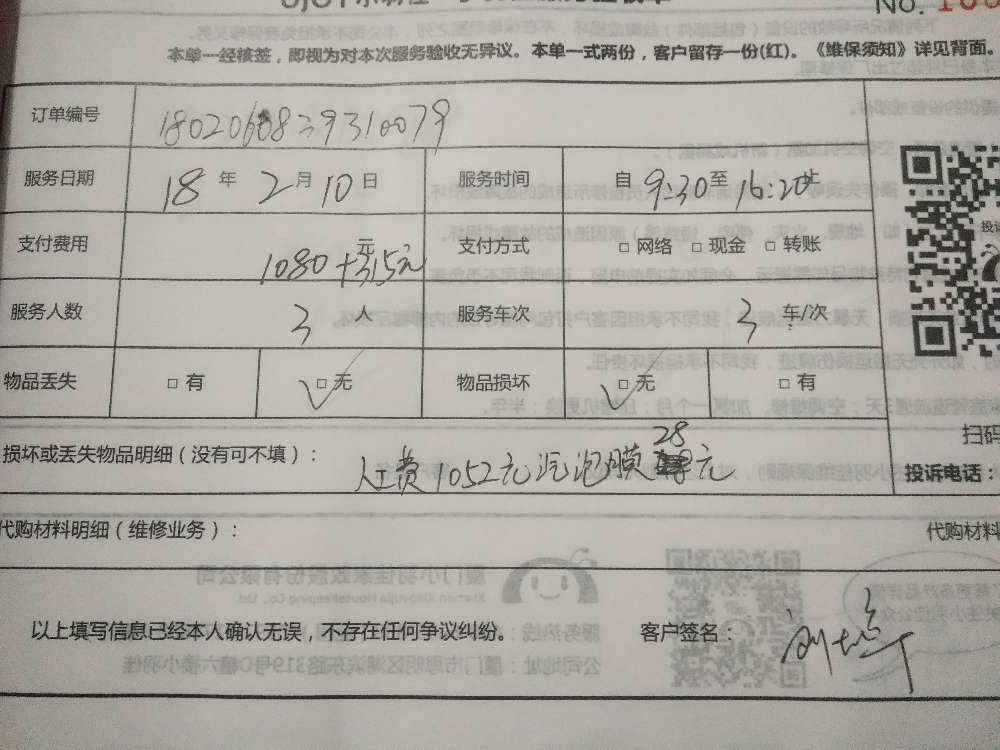 No.
本单一经核签，即视为对本次服务验收无异议。本单一式两份，客户留存一份(红)。《维保须知》详见背面。
订单编号
服务日期 18 年 2 月 10 日 服务时间 自 9:30 至 16:20 止
支付费用 1080+315元 元 支付方式 □ 网络 □ 现金 □ 转账
服务人数 3 人 服务车次 3 车/次
物品丢失 □ 有 □ 无 物品损坏 □ 无 □ 有
扫码
损坏或丢失物品明细（没有可不填）： 人工费1052元汽泡膜28元
投诉电话：
代购材料明细（维修业务）： 代购材料
以上填写信息已经本人确认无误，不存在任何争议纠纷。 客户签名：